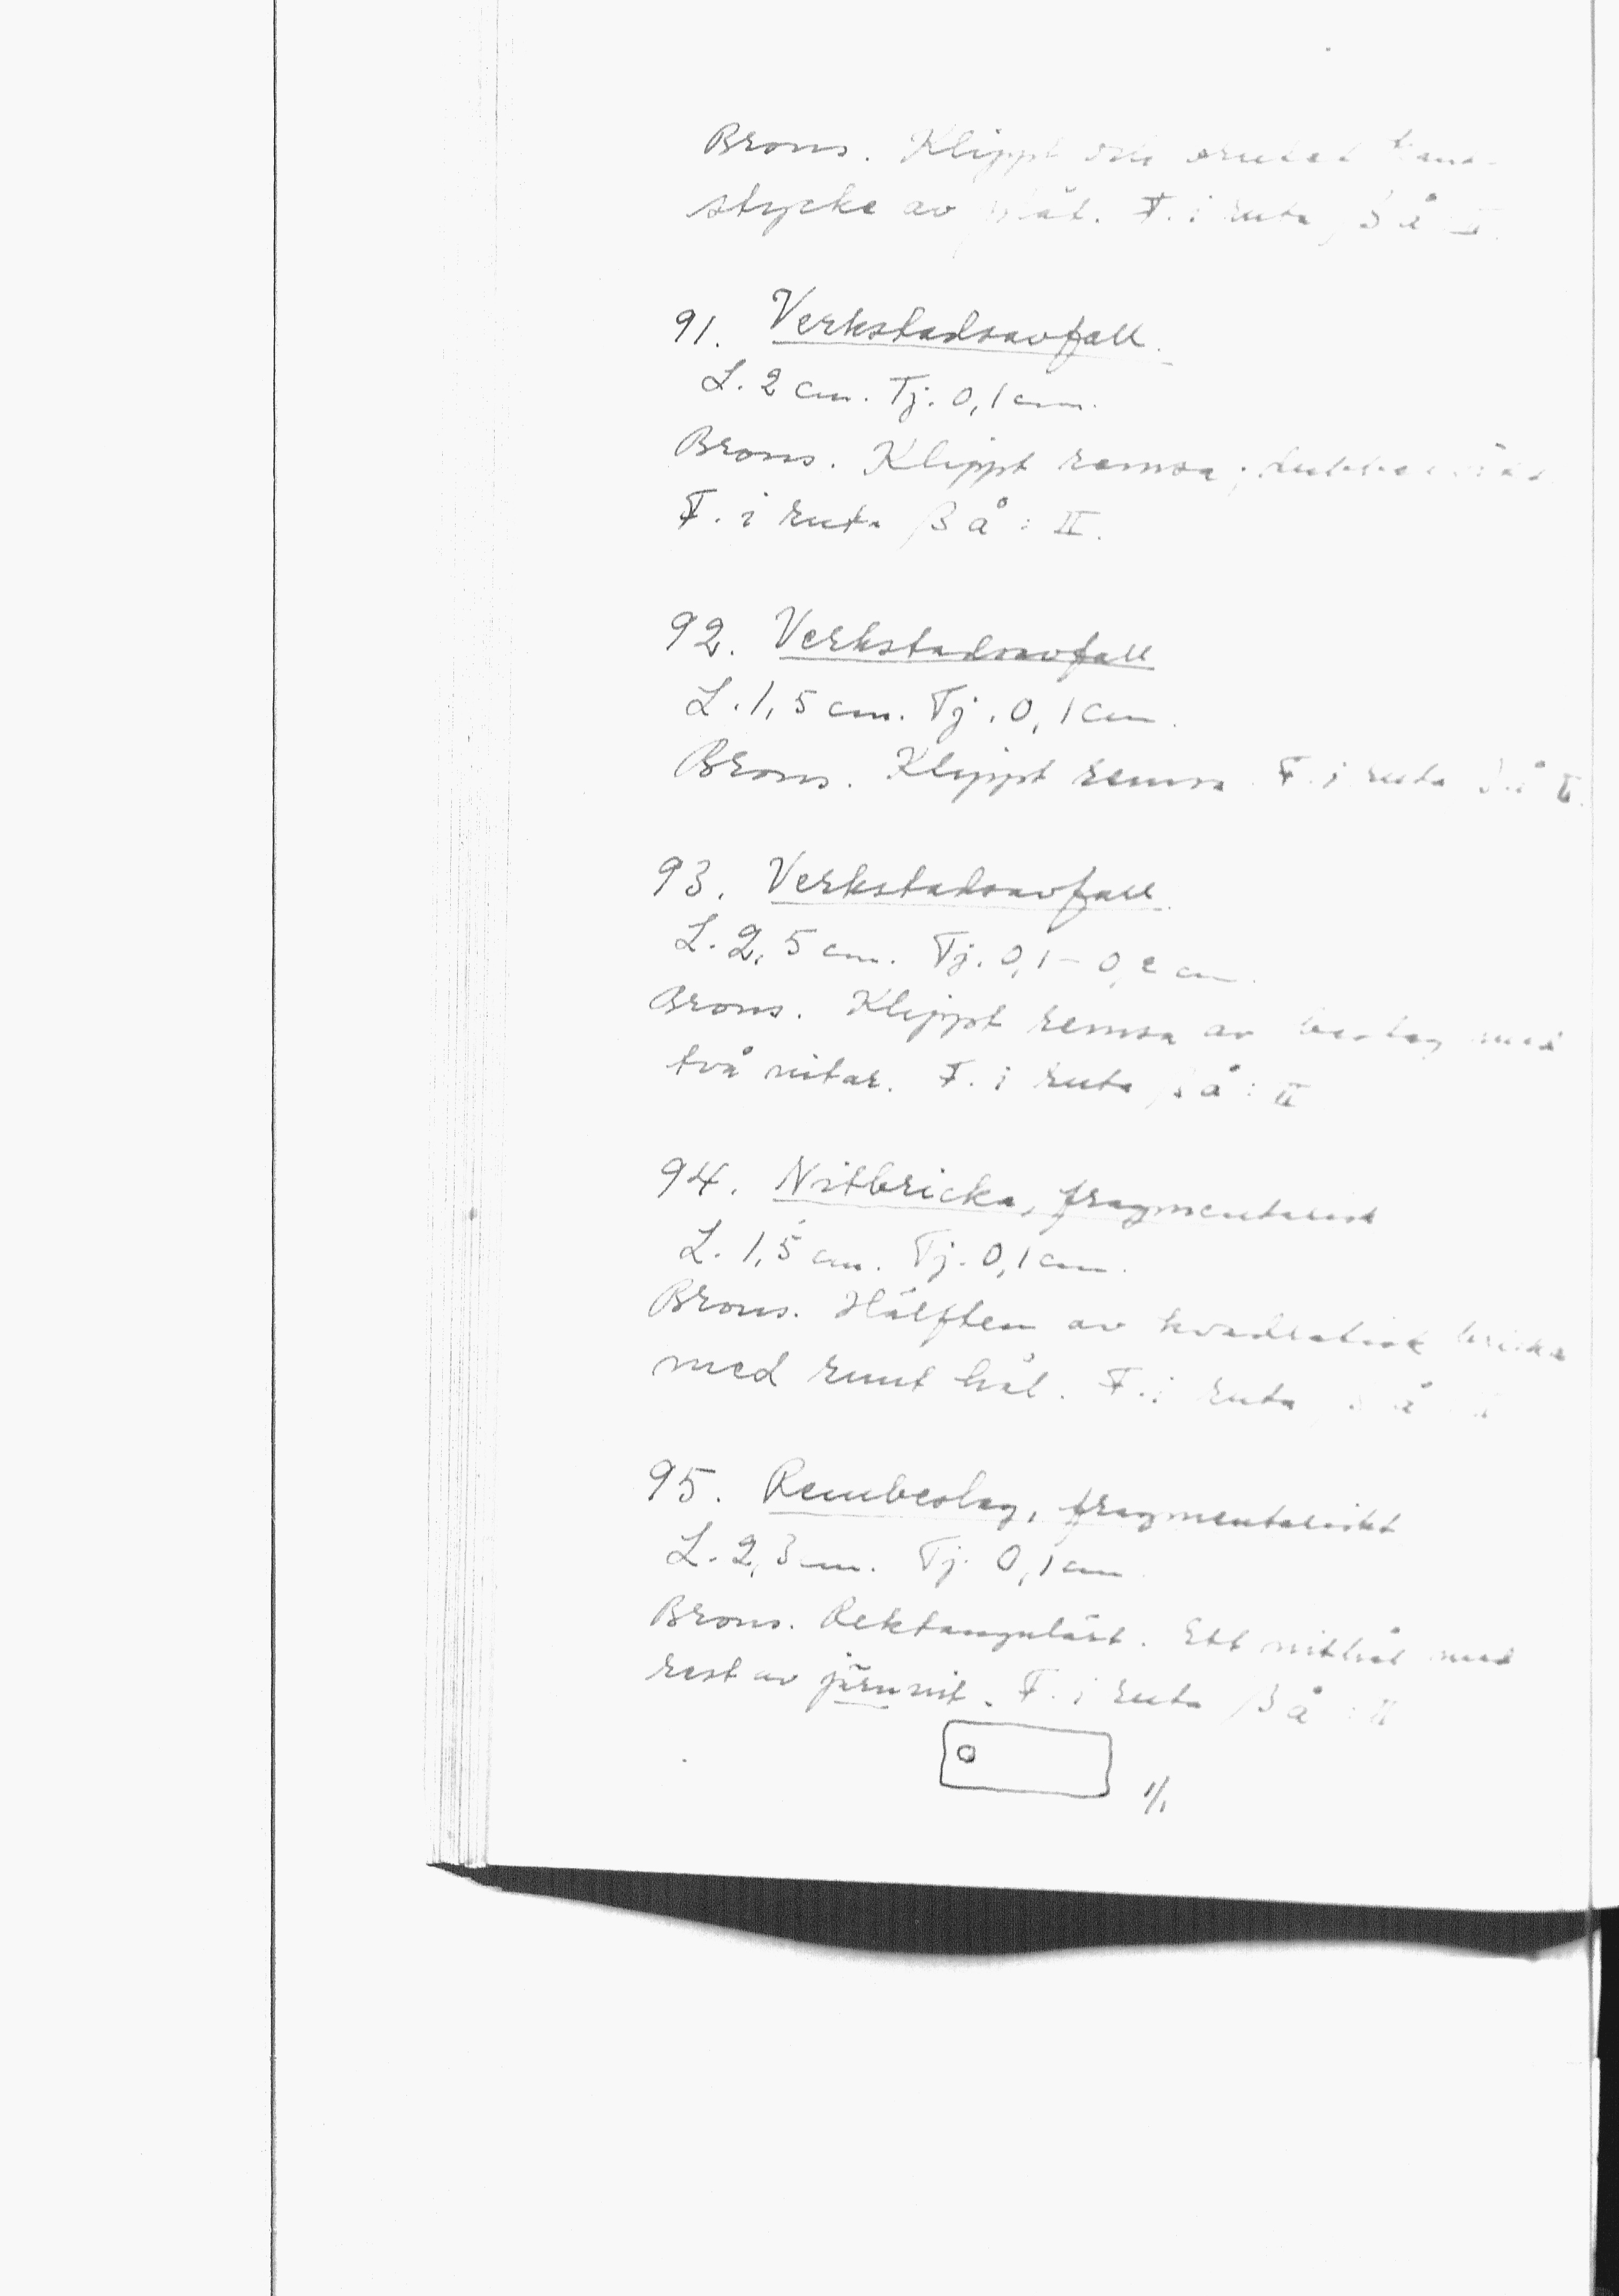 Brons. Klippt och
stycke av plåt. F. i ruta βå: II
91. Verkstadsavfall.
L. 2 cm. Tj. 0,1 cm.
Brons. Klippt remsa, dubbelvikt
F. i ruta βå: II.
92. Verkstadsavfall
L. 1,5 cm. Tj. 0,1 cm.
Brons. Klippt remsa. F. i ruta βå II.
93. Verkstadsavfall.
L. 2,5 cm. Tj. 0,1 – 0,2 cm.
Brons. Klippt remsa av beslag med
två nitar. F. i ruta βå: II
94. Nitbricka, fragmentarisk
L. 1,5 cm. Tj. 0,1 cm.
Brons. Hälften av kvadratisk bricka
med runt hål. F. i ruta βå
95. Rembeslag, fragmentariskt
L. 2,3 cm. Tj. 0,1 cm
Brons. Rektangulärt. Ett nithål med
rest av järnnit. F. i ruta βå: II
1/1